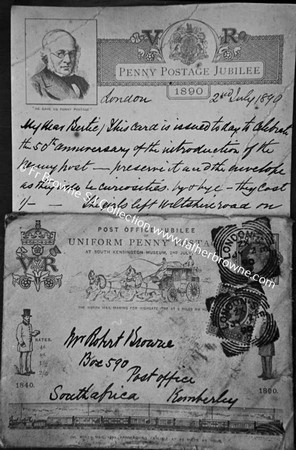 V R
PENNY POSTAGE JUBILEE
1890
London 2nd July 1890
My dear Bertie, This card is issued to day to celebrate
the 50th anniversary of the introduction of the
penny post — preserve it and the envelope
as they will be curiosities by & bye — they cost
1/- — The girls left Wiltshire road on
POST OFFICE JUBILEE
OF
UNIFORM PENNY POSTAGE
AT SOUTH KENSINGTON MUSEUM, 2ND JULY
V R
Mr Robert Browne
Box 590
Post office
South africa Kimberley
1840.
1890.
© Fr Browne S.J. Collection
www.fatherbrowne.com